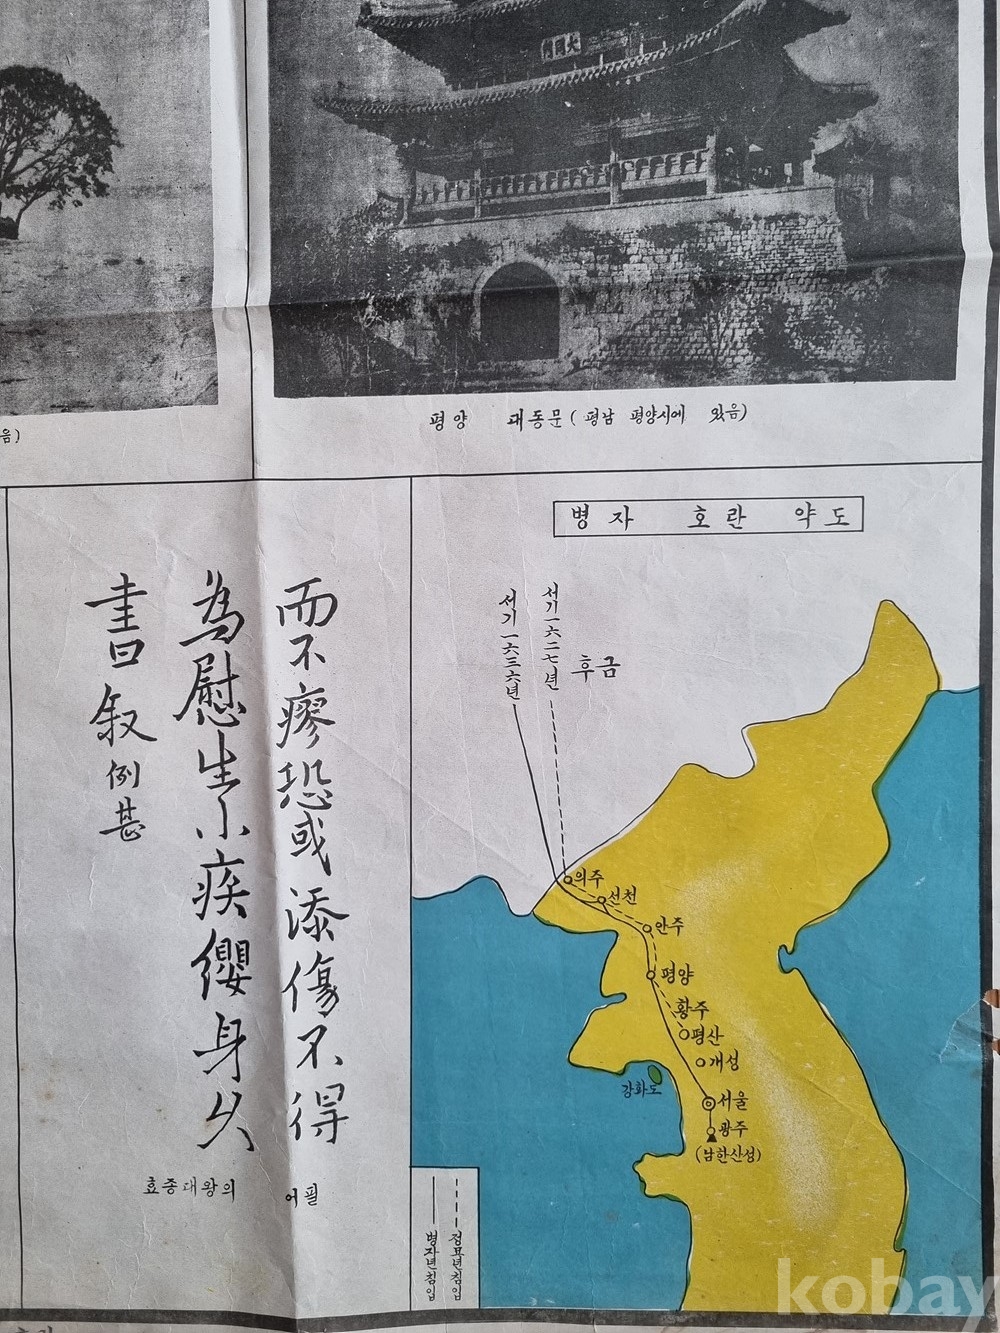 大同門
음)
평양 대동문 ( 평남 평양시에 있음)
병자 호란 약도
서기一六二七년
서기一六三六년
후금
의주
선천
안주
평양
황주
평산
개성
강화도
서울
광주
(남한산성)
정묘년침입
병자년침입
而不瘳恐或添傷不得
為慰生小疾纓身久
書叙例甚
효종대왕의 어필
kobay